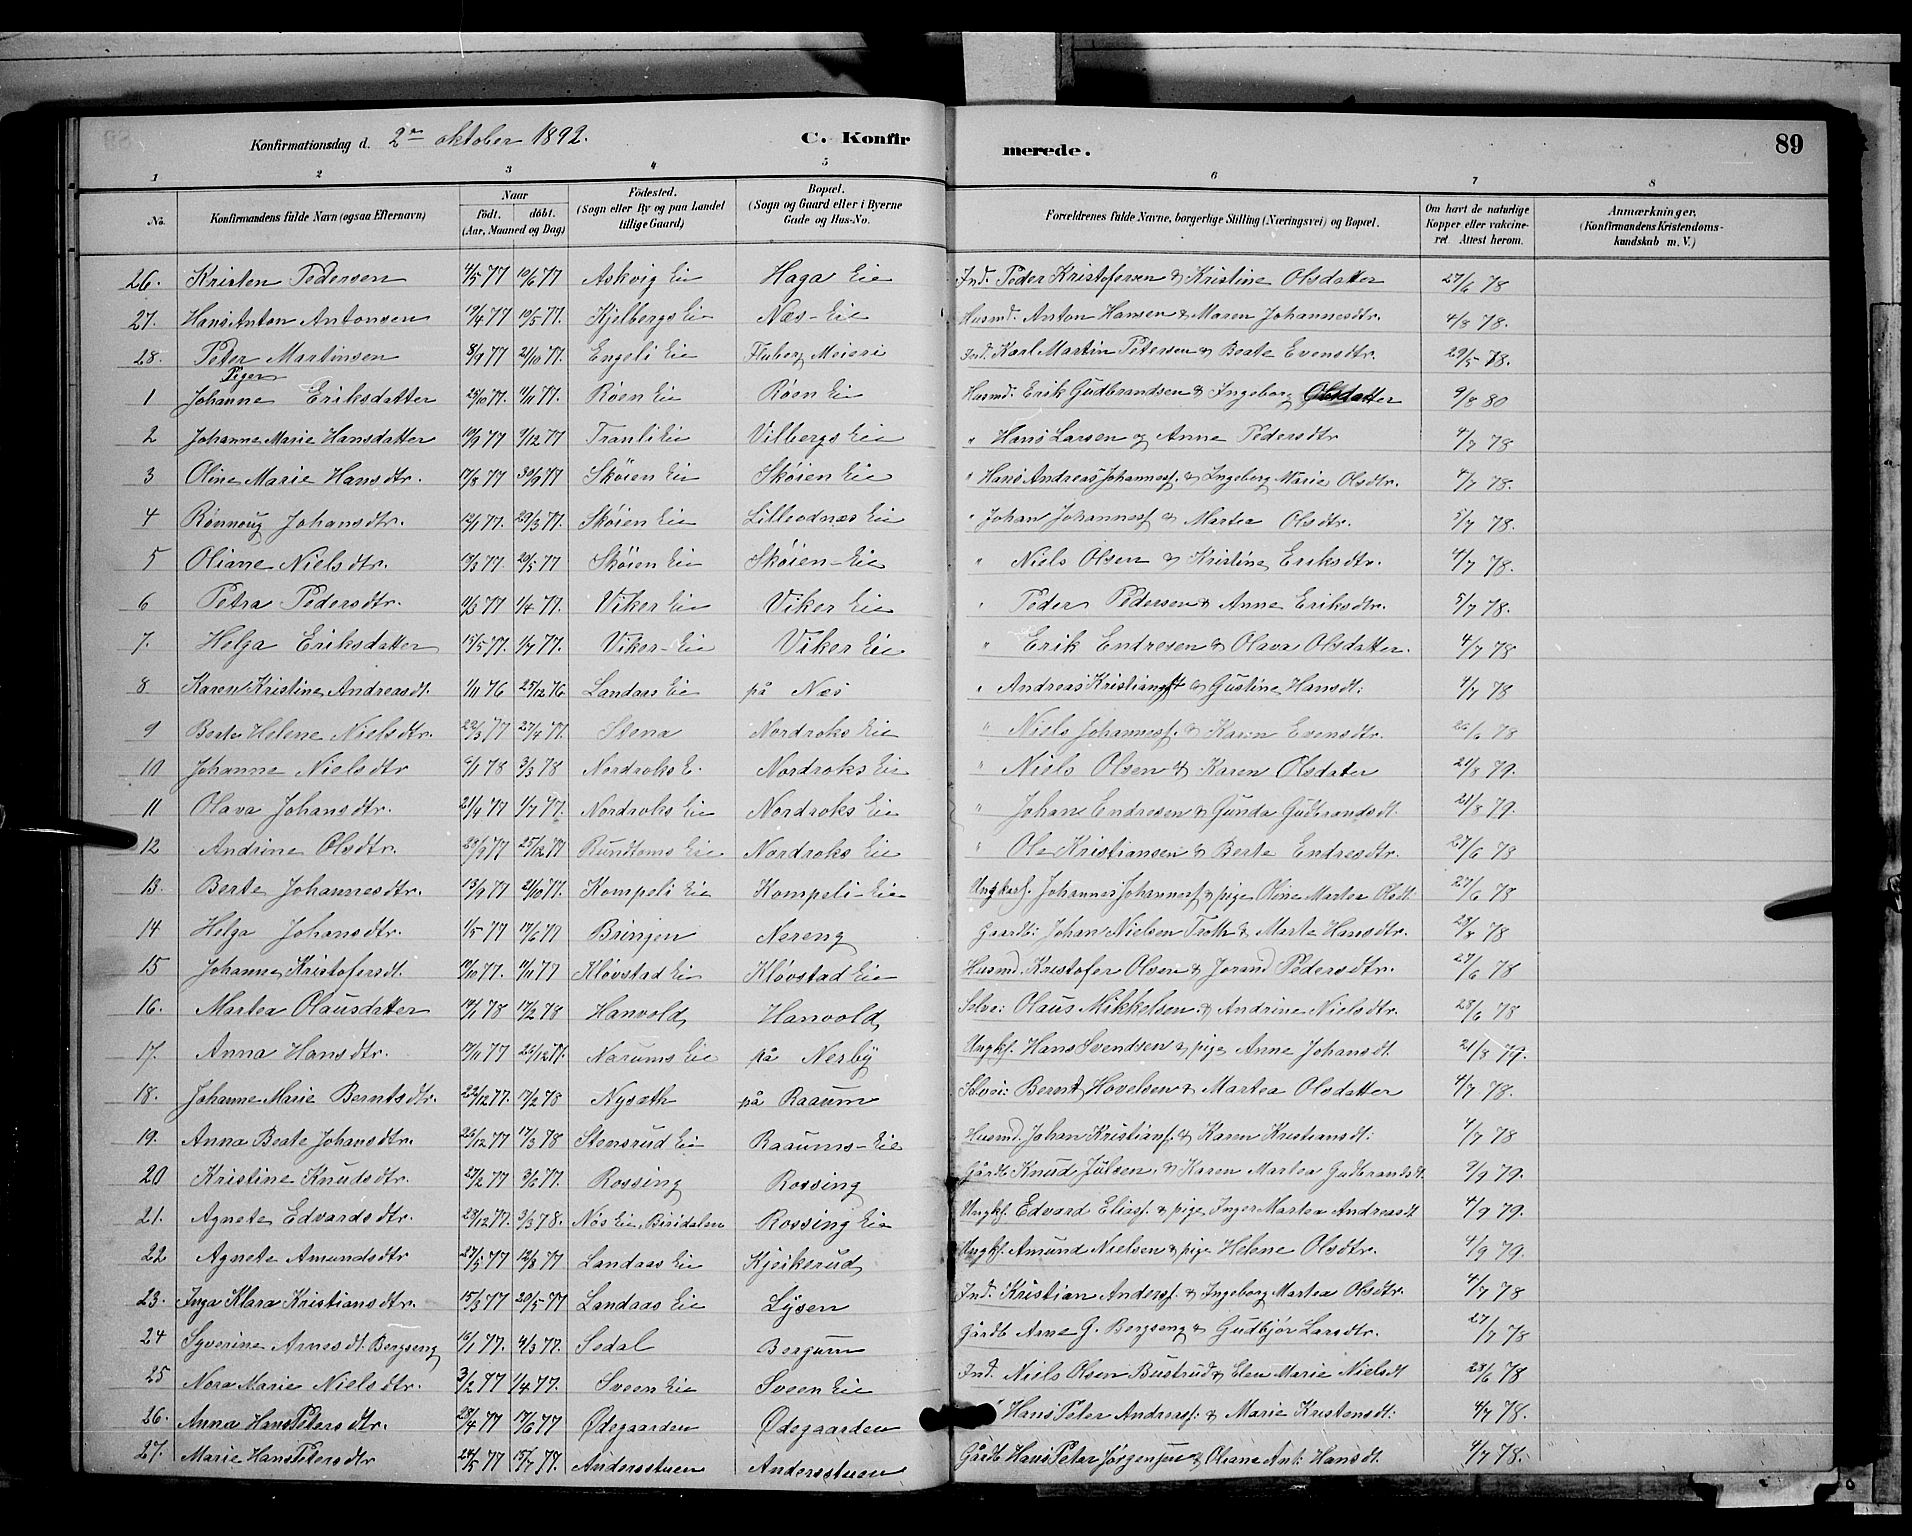 Konfirmationsdag d. 2den oktober 1892. C. Konfirmerede. 89
1 2 3 4 5 6 7 8
No. Konfirmandens fulde Navn (ogsaa Efternavn) Naar født. døbt. (Aar, Maaned og Dag) Fødested. (Sogn eller By og paa Landet tillige Gaard) Bopæl. (Sogn og Gaard eller i Byerne Gade og Hus-No. Forældrenes fulde Navne, borgerlige Stilling (Næringsvei) og Bopæl. Om havt de naturlige Kopper eller vakcineret. Attest herom. Anmærkninger. (Konfirmandens Kristendomskundskab m. V.)
26. Kristen Pedersen 4/5 77 10/6 77 Askvig Eie Haga Eie Ind. Peder Kristofersen & Kristine Olsdatter 27/6 78
27. Hans Anton Antonsen 17/4 77 10/5 77. Kjelbergs Eie Næs-Eie Husmd. Anton Hansen & Maren Johannesdtr. 4/8 78.
28. Peter Martinsen 8/9 77 21/10 77. Engeli Eie Fluberg Meieri Ind. Karl Martin Petersen & Beate Evensdtr. 29/5 78.
Piger
1 Johanne Eriksdatter 23/10 77. 4/11 77. Røen Eie Røen Eie Husmd. Erik Gudbrandsen & Ingeborg Olsdatter 9/8 80
2 Johanne Marie Hansdatter 10/9 77 9/12 77 Tranli Eie Vilbergs Eie " Hans Larsen og Anne Pedersdtr 4/7 78
3 Oline Marie Hansdtr. 17/8 77 30/9 77 Skøien Eie Skøien Eie " Hans Andreas Johanness. & Ingeborg Marie Olsdtr. 4/7 78.
4 Rønnoug Johansdtr. 12/1 77. 29/3 77. Skøien Eie Lilleodnæs Eie " Johan Johanness. & Martea Olsdtr. 5/7 78.
5 Oliane Nielsdtr. 10/3 77 20/5 77 Skøien Eie Skøien-Eie " Niels Olsen & Kristine Eriksdtr. 4/7 78.
6 Petra Pedersdtr. 11/2 77 1/4 77. Viker Eie Viker Eie " Peder Pedersen & Anne Eriksdtr. 5/7 78.
7. Helga Eriksdatter 15/5 77. 1/7 77. Viker-Eie Viker Eie " Erik Endresen & Olava Olsdatter. 4/7 78
8 Karen Kristine Andreasdt. 1/11 76 25/12 76. Landaas Eie på Næs " Andreas Kristians. & Gustine Hansdt: 4/7 78
9 Berte Helene Nielsdtr. 22/3 77 27/4 77. Stena Nordroks Eie " Niels Johanness. & Karen Evensdtr. 26/6 78
10 Johanne Nielsdtr 6/1 78 3/3 78 Nordroks E. Nordroks Eie " Niels Olsen & Karen Olsdatter 21/8 79.
11 Olava Johansdtr. 21/4 77 1/7 77. Nordroks Eie Nordroks Eie " Johan Endresen & Gunda Gudbrandsdt. 21/8 79.
12 Andrine Olsdtr. 23/9 77 25/12 77 Rundtoms Eie Nordroks Eie " Ole Kristiansen & Berte Endresdtr. 27/6 78
13. Berte Johannesdtr. 13/9 77 21/10 77. Kompeli Eie Kompeli-Eie Ungkarl. Johannes Johanness. & pige Oline Martea Olsdt. 27/6 78
14 Helga Johansdtr. 1/5 77 17/6 77 Bringen Nereng Gaardb: Johan Nielsen Troth & Marte Hansdtr. 23/8 78
15 Johanne Kristofersdt. 10/10 77. 11/11 77 Kløvstad Eie Kløvstad Eie Husmd. Kristofer Olsen & Jorand Pedersdtr. 27/6 78
16. Martea Olausdatter 14/1 78 17/2 78 Hanvold Hanvold Selve: Olaus Mikkelsen & Andrine Nielsdtr. 28/6 78
17. Anna Hansdtr. 17/11 77 26/12 77. Narums Eie på Nerby Ungkf. Hans Svendsen & pige Anne Johansdt. 21/8 79.
18. Johanne Marie Berntsdtr. 22/12 77. 17/2 78 Nyseth på Raaum Selvei: Bernt Hovelsen & Martea Olsdatter 4/7 78.
19. Anna Beate Johansdtr. 26/12 77 17/3 78 Stensrud Eie Raaums-Eie Husmd. Johan Kristians. & Karen Kristiansdt. 4/7 78
20 Kristine Knudsdtr. 27/2 77 3/6 77. Rossing Rossing Gårdb Knud Julsen & Karen Martea Gudbrandsdt. 9/9 79.
21. Agnete Edvardsdtr. 23/12 77. 3/3 78. Nøs Eie, Biridalen Rossing Eie Ungkf. Edvard Elias. & pige Inger Martea Andreasdt 4/9 79.
22 Agnete Amundsdtr 27/5 77 12/8 77 Landaas Eie Kjeiksrud Ungkf. Amund Nielsen & pige Helene Olsdtr. 4/9 79.
23. Inga Klara Kristiansdtr. 15/3 77 20/5 77 Landaas Eie Lysen Ind. Kristian Anderss. & Ingeborg Martea Olsdtr. 4/7 78
24 Syverine Arnesdt. Bergseng 16/1 77. 4/3 77. Sedal Bergum Gårdb Arne G. Bergseng & Gudbjør Larsdtr. 27/7 78
25 Nora Marie Nielsdtr. 3/2 77 1/4 77. Sveen Eie Sveen Eie Ind. Niels Olsen Bustrud & Elen Marie Nielsdt 28/6 78
26. Anna Hans Petersdtr. 29/4 77 17/6 77 Ødegaarden Ødegaarden " Hans Peter Andreass. & Marie Kristensdt: 4/7 78.
27. Marie Hans Petersdtr 24/5 77 15/7 77. Andersstuen Andersstuen Gårdb Hans Peter Jørgensen & Oliane Ant: Hansdt. 4/7 78.